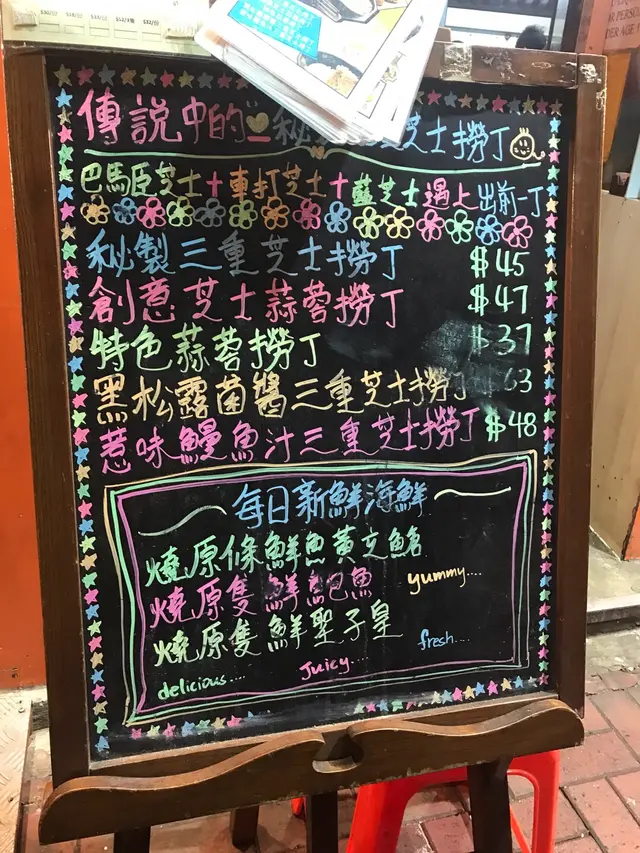 傳說中的 秘 芝士撈丁
巴馬臣芝士+車打芝士+藍芝士遇上出前一丁
秘製三重芝士撈丁 $45
創意芝士蒜蓉撈丁 $47
特色蒜蓉撈丁 $37
黑松露菌醬三重芝士撈丁 63
惹味鰻魚汁三重芝士撈丁 $48
每日新鮮海鮮
燒原條鮮魚黃立鯧
燒原隻鮮鮑魚 yummy....
燒原隻鮮聖子皇 fresh....
delicious.... Juicy....